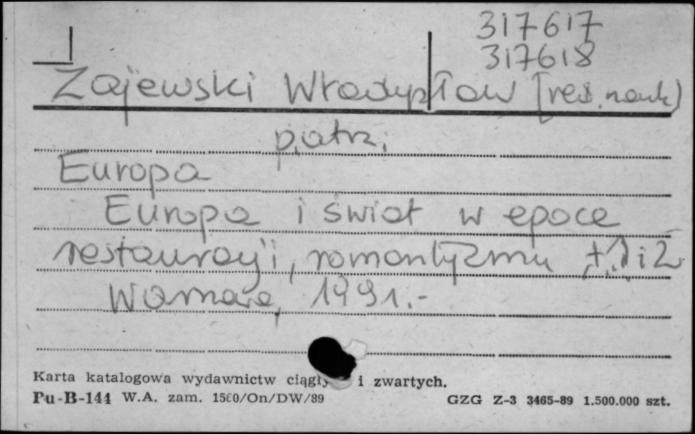 317617
317618
Zajewski Władysław [red. nauk)
patrz.
Europa
Europa i świat w epoce
restauracji, romantyzmu t.1 i 2
Warszawa, 1991.-
Karta katalogowa wydawnictw ciągły i zwartych.
Pu-B-144 W.A. zam. 1560/On/DW/89 GZG Z-3 3465-89 1.500.000 szt.